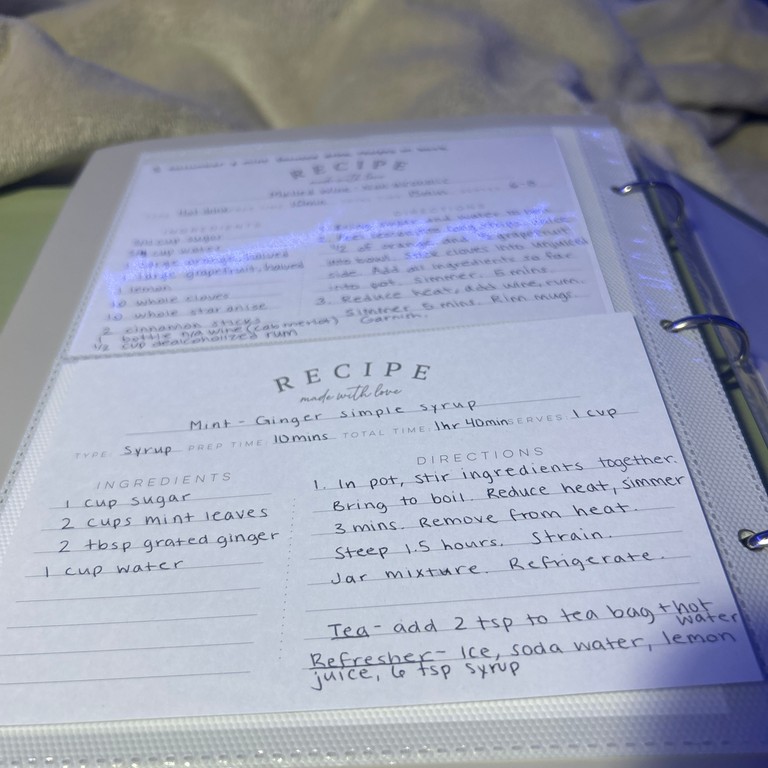 RECIPE
made with love
Hot drink
INGREDIENTS
DIRECTIONS
3/4 cup sugar
3/4 cup water
1 large orange, halved
1 large grapefruit, halved
1 lemon
10 whole cloves
10 whole star anise
2 cinnamon sticks
1 bottle n/a wine (cab merlot)
1/2 cup dealcoholized rum
1/2 of orange and grapefruit
into bowl. Stick cloves into unjuiced
side. Add all ingredients so far
into pot. Simmer 5 mins.
3. Reduce heat, add wine, rum.
Simmer 5 mins. Rim mugs.
Garnish.
RECIPE
made with love
Mint - Ginger simple syrup
TYPE: Syrup PREP TIME: 10mins TOTAL TIME: 1hr 40min SERVES: 1 cup
INGREDIENTS
1 cup sugar
2 cups mint leaves
2 tbsp grated ginger
1 cup water
DIRECTIONS
1. In pot, stir ingredients together.
Bring to boil. Reduce heat, simmer
3 mins. Remove from heat.
Steep 1.5 hours. Strain.
Jar mixture. Refrigerate.
Tea - add 2 tsp to tea bag + hot
water
Refresher - Ice, soda water, lemon
juice, 6 tsp syrup